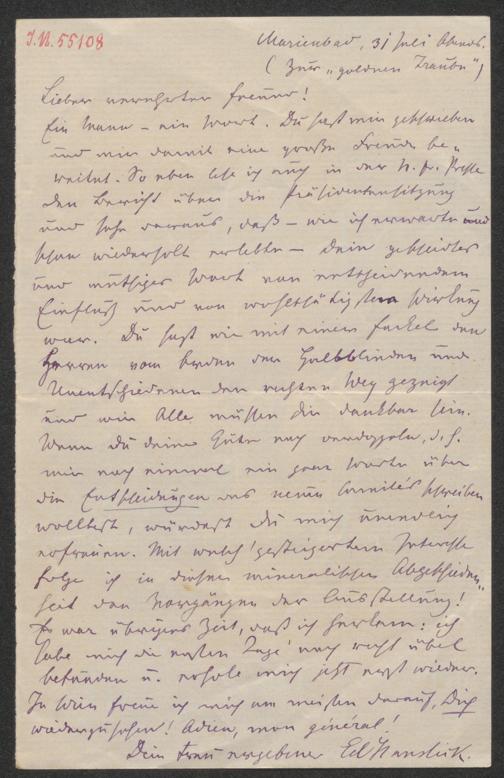 J.N. 55108
Marienbad, 31 Juli Abends.
(Zur „goldenen Traube")
Lieber verehrter Freund!
Ein Mann – ein Wort. Du hast mir geschrieben
und mir damit eine große Freude be-
reitet. So eben lese ich auch in der N. fr. Presse
den Bericht über die Präsidentensitzung
und sehe daraus, daß – wie ich erwarte und
schon wiederholt erlebte – Dein gescheidtes
und muthiges Wort von entscheidendem
Einfluß und von wohlthätigster Wirkung
war. Du hast wie mit einer Fackel den
Herren vom Orden der Halbblinden und
Unentschiedenen den rechten Weg gezeigt
und wir Alle müssen dir dankbar sein.
Wenn Du deine Güte noch verdoppeln, d. h.
mir noch einmal ein paar Worte über
die Entscheidungen des neuen Comités schreiben
wolltest, würdest du mich unendlich
erfreuen. Mit welch' gesteigertem Interesse
folge ich in dieser mineralischen Abgeschieden-
heit den Vorgängen der Ausstellung!
Es war übrigens Zeit, daß ich herkam: ich
habe mich die ersten Tage noch recht übel
befunden u. erhole mich jetzt erst wieder.
In Wien freue ich mich am meisten darauf, Dich
wiederzusehen! Adieu, mon général!
Dein treu ergebener Ed Hanslick.